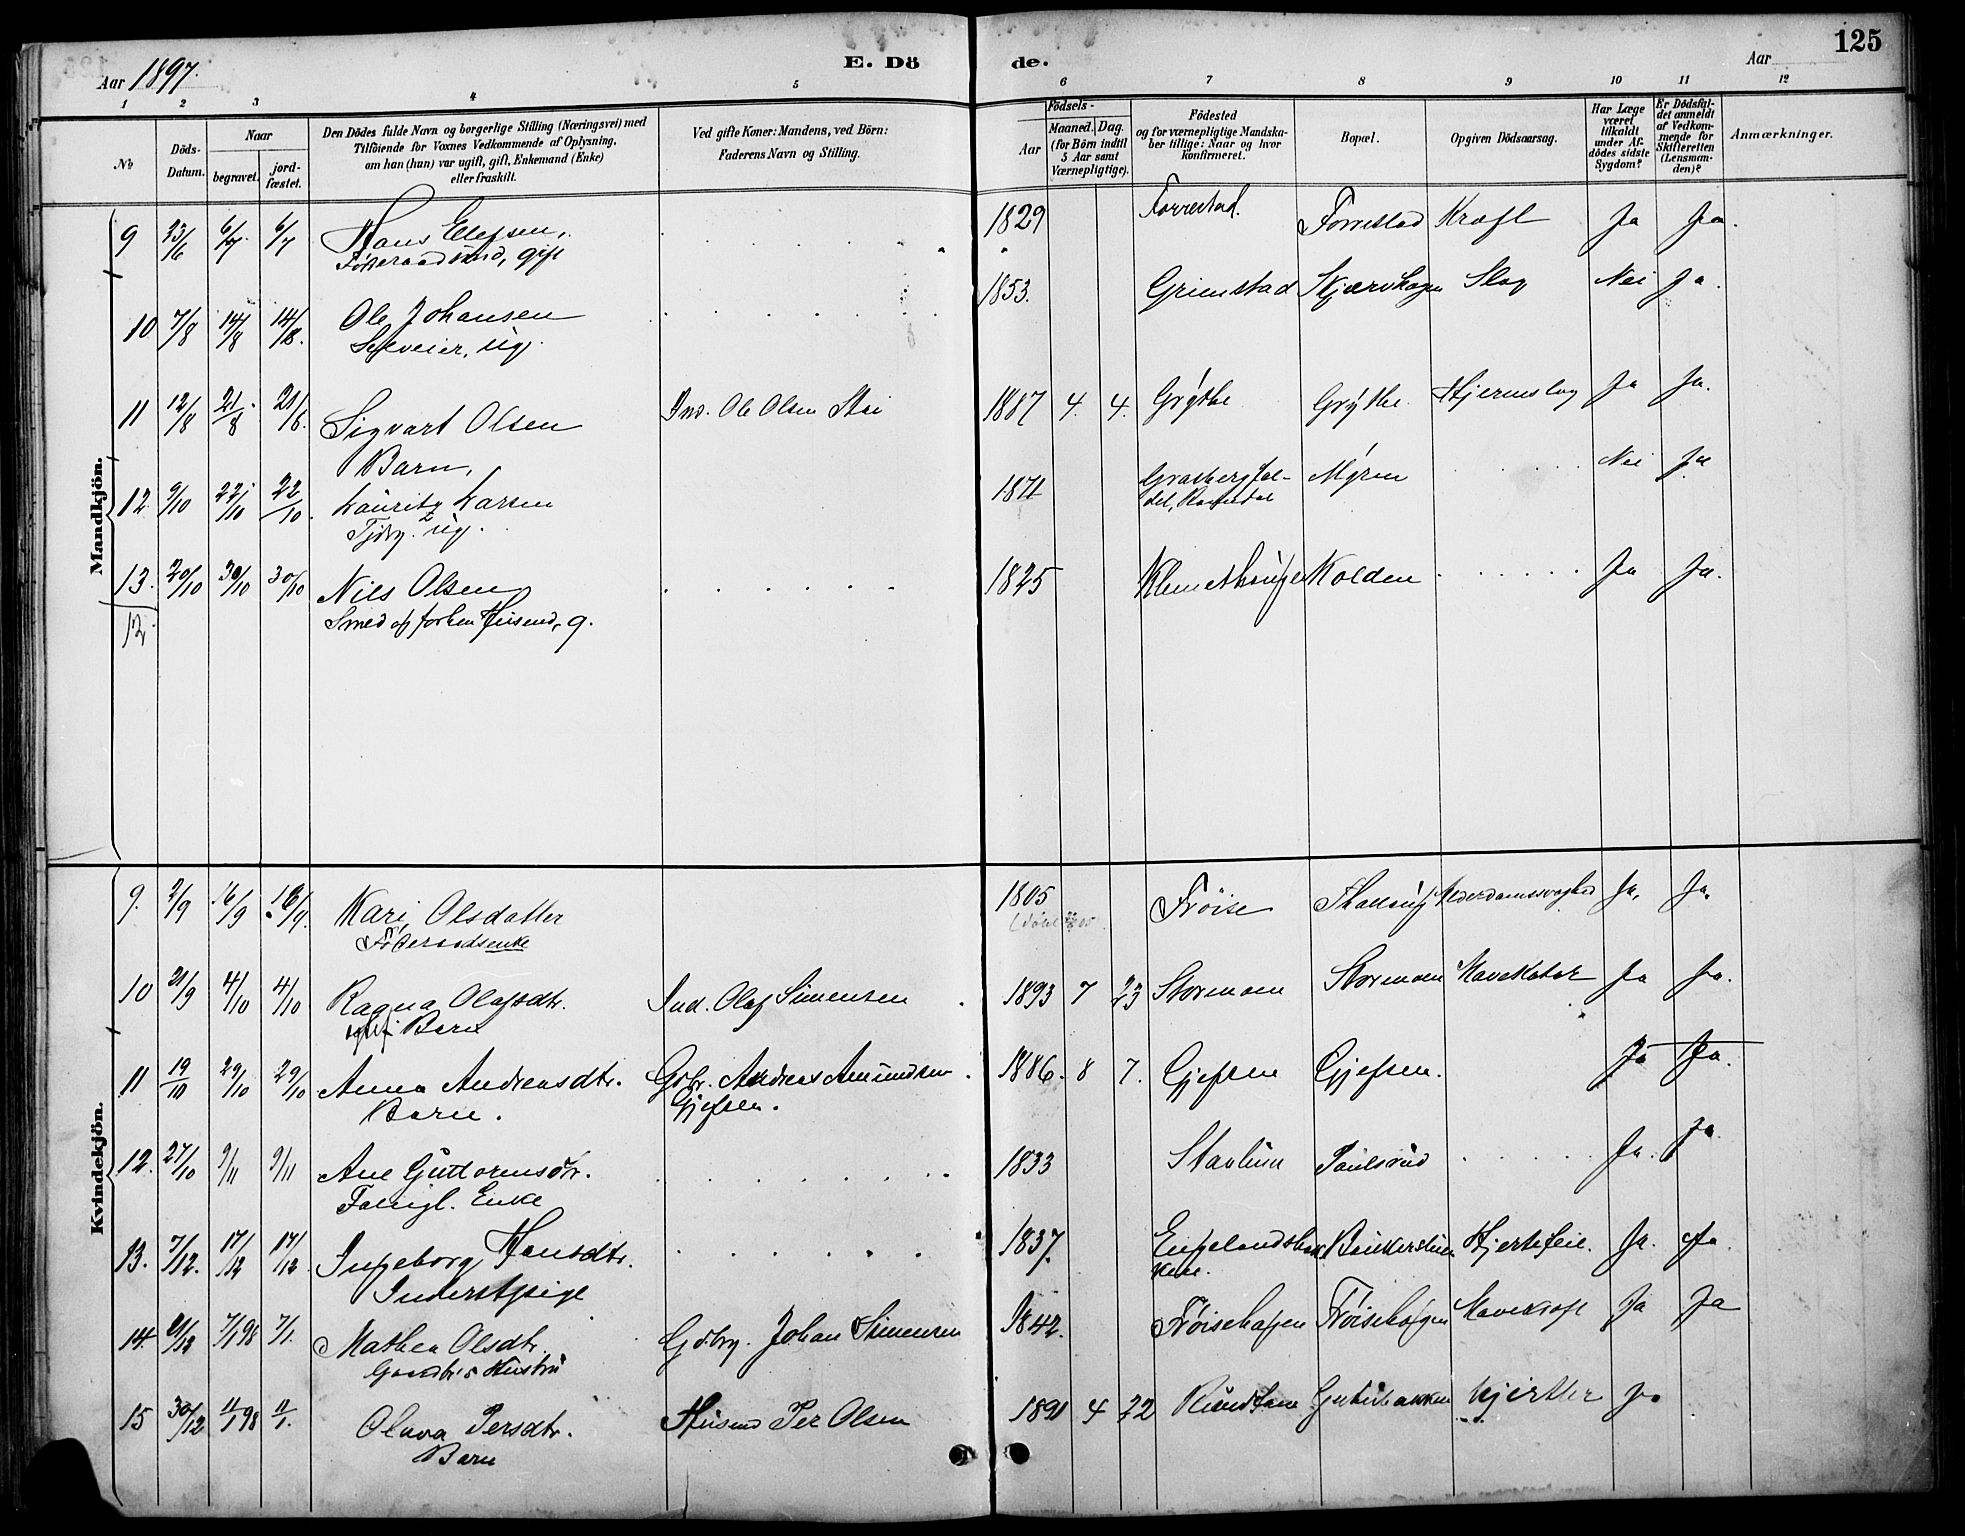 125
Aar 1897.
E. Dö
de.
Aar
1 2 3 4 5 6 7 8 9 10 11 12
№
Döds-
Datum.
Naar
begravet.
jord-
fæstet.
Den Dödes fulde Navn og borgerlige Stilling (Næringsvei) med
Tilföiende for Voxnes Vedkommende af Oplysning,
om han (hun) var ugift, gift, Enkemand (Enke)
eller fraskilt.
Ved gifte Koner: Mandens, ved Börn:
Faderens Navn og Stilling.
Födsels-
Aar
Maaned.
Dag.
(for Börn indtil
5 Aar samt
Værnepligtige).
Födested
og for værnepligtige Mandska-
ber tillige: Naar og hvor
konfirmeret.
Bopæl.
Opgiven Dödsaarsag.
Har Læge
været
tilkaldt
under Af-
dödes sidste
Sygdom?
Er Dödsfal-
det anmeldt
af Vedkom-
mende for
Skifteretten
(Lensman-
den)?
Anmærkninger.
Mandkjön.
9 23/6 6/7 6/7 Hans Elefsen, 1829 Forrestad. Forrestad Kræft Ja Ja.
Föderaadsmd, gift
10 7/8 14/8 14/8. Ole Johansen 1853. Grimstad Skjærvhagen Slag Nei Ja.
ug.
11 12/8 21/8 21/8. Sigvart Olsen Ind. Ole Olsen 1887 4. 4. Grÿthe Grÿthe Hjerneslag Ja Ja.
Barn,
12. 9/10 22/10 22/10. Lauritz Larsen 1871 Mÿren Nei Ja
ug.
13. 20/10 30/10 30/10 Nils Olsen 1825 Kolden Ja Ja.
Smed of forhen Husmd, g.
Kvindekjön.
9. 2/9 16/9 16/9. Kari Olsdatter 1805 Fröise Alderdomssvaghed Ja, Ja.
Föderaadsenke
10 21/9 4/10 4/10 Ragna Olafsdtr. Ind. Olaf Simensen 1893 7 23 Stormoen Stormoen Mavekatar Ja Ja.
Barn
11 19/10 29/10 29/10 Anna Andreasdtr. Gbr. Andreas Amundsen 1886. 8 7. Gjefsen Gjefsen. Ja Ja.
Barn. Gjefsen.
12. 27/10 9/11 9/11 Ane Guttormsdtr. 1833 Paulsrud Ja. Ja
Enke
13. 7/12. 17/12 17/12 Ingeborg Hansdtr. 1837. Hjertefeil. Ja. Ja.
Inderstpige
14. 7/1 98 7/1. Mathea Olsdtr. Gdbrg. Johan Simensen 1842. Fröisehagen Fröisehagen Ja Ja
Gaardbr's Hustru
15 30/12 11/1 98 11/1. Olava Persdtr. Husmd Per Olsen 1891 4 22 Ja
Barn